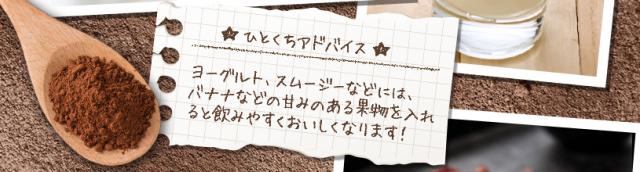 ★ひとくちアドバイス★
ヨーグルト、スムージーなどには、
バナナなどの甘みのある果物を入れ
ると飲みやすくおいしくなります!